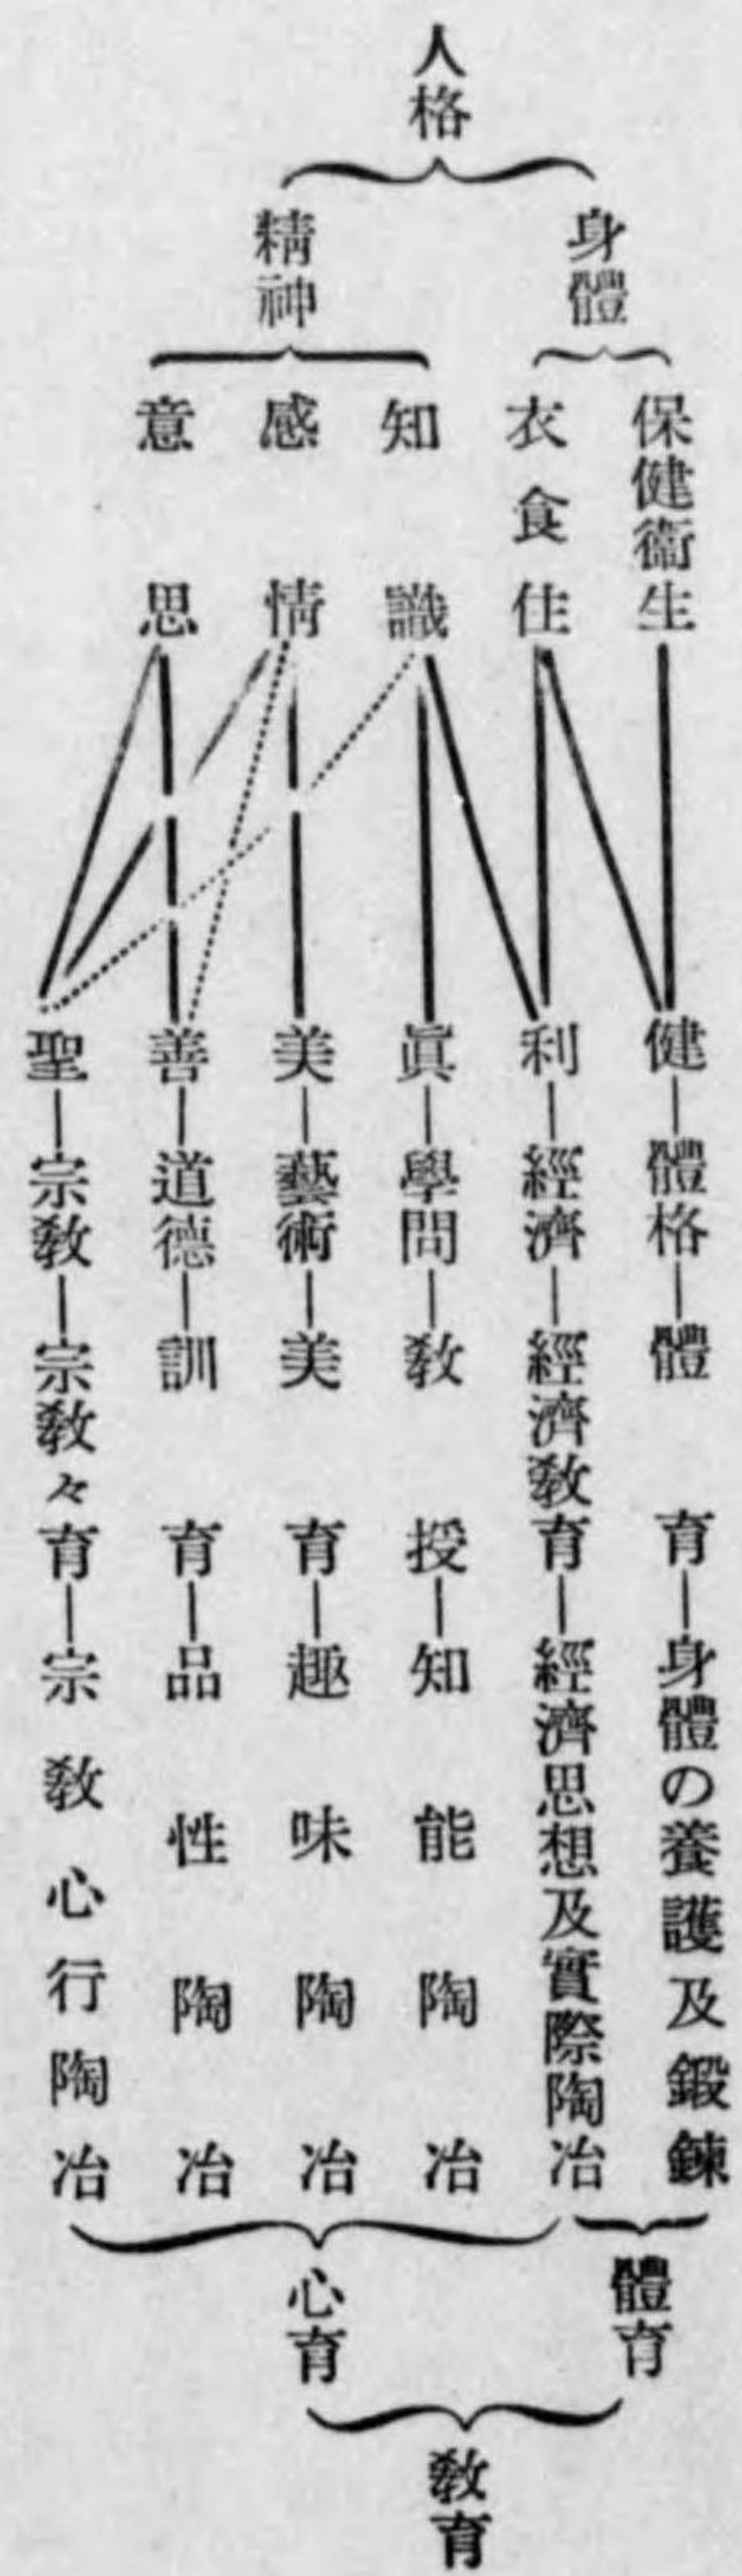 人格
身體
精神
保健衞生
衣食住
知識
感情
意思
健―體格―體育―身體の養護及鍛鍊
利―經濟―經濟敎育―經濟思想及實際陶冶
眞―學問―敎授―知能陶冶
美―藝術―美育―趣味陶冶
善―道德―訓育―品性陶冶
聖―宗敎―宗敎々育―宗敎心行陶冶
體育
心育
敎育